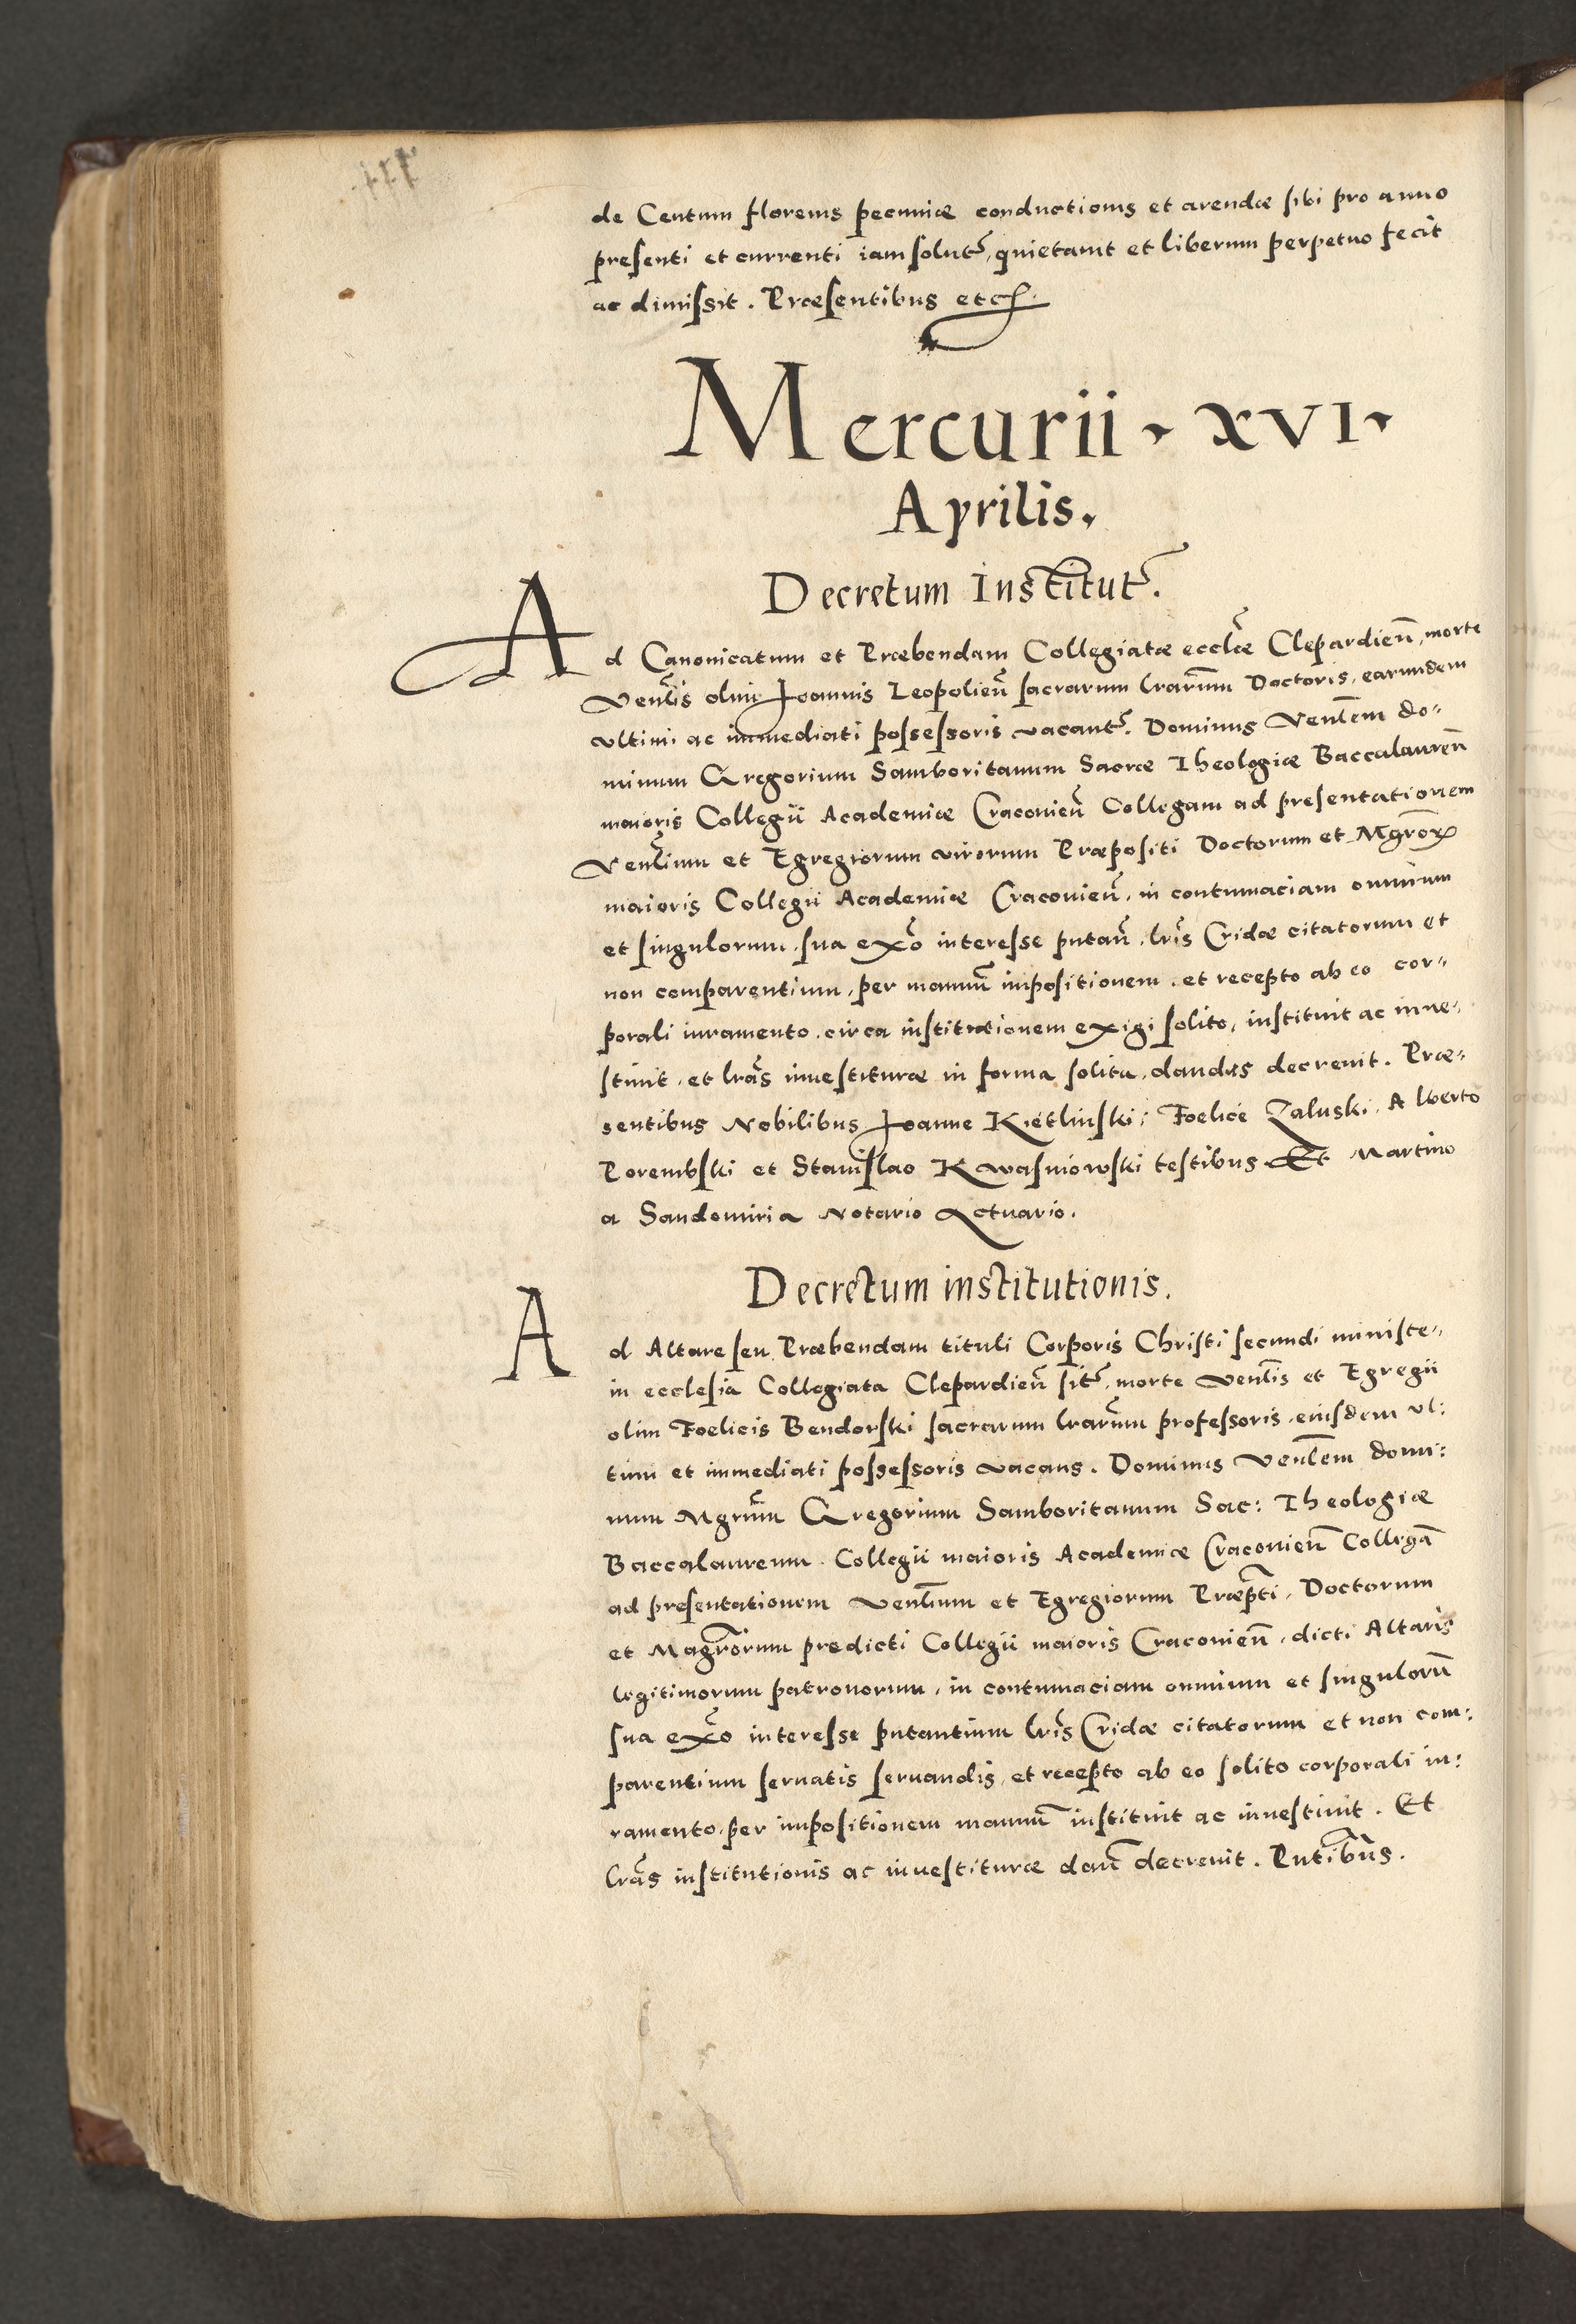 de Centum florenis pecuniæ conductionis et arendæ sibi pro anno
presenti et currenti iam solut, quietauit et liberum perpetuo fecit
ac dimissit. Præsentibus etc.
Mercurii. XVI.
Aprilis.
Decretum Institut.
Ad Canonicatum et Præbendam Collegiatæ eccl̃æ Clepardieñ, morte
Venl̃is olim Joannis Leopolieñ sacrarum lrarũm Doctoris, earundem
vltimi ac immediati possessoris vacant. Dominus Venl̃em do=
minum Gregorium Samboritanum Sacræ Theologiæ Baccalaureũ
maioris Collegii Academiæ Cracovieñ Collegam ad presentationem
Venl̃ium et Egregiorum virorum Præpositi Doctorum et Mgrõꝝ
maioris Collegii Academiæ Cracovieñ, in contumaciam omnium
et singulorum, sua ex̃o interesse putañ, lrĩs Cridæ citatorum et
non comparentium, per manuũ impositionem, et recepto ab eo cor=
porali iuramento, circa institutionem exigi solito, instituit ac inue=
stiuit, et lrãs inuestituræ in forma solita, dandas decreuit. Præ=
sentibus Nobilibus Joanne Kietlinski, Foelice Zaluski, Alberto
Porembski et Stanislao Kwasniowski testibus Et Martino
a Sandomiria Notario Actuario.
Decretum institutionis.
Ad Altare seu Præbendam tituli Corporis Christi secundi ministe=
in ecclesia Collegiata Clepardieñ sit, morte Venl̃is et Egregii
olim Foelicis Bendorski sacrarum lrarũm professoris, eiusdem vl:
timi et immediati possessoris vacans. Dominus Venl̃em domi:
num Mgrũm Gregorium Samboritanum Sac: Theologiæ
Baccalaureum Collegii maioris Academiæ Cracovieñ Collegã
ad presentationem Venl̃ium et Egregiorum Præpt̃i, Doctorum
et Magrõrum predicti Collegii maioris Cracovieñ, dicti Altaris
legitimorum patronorum, in contumaciam omnium et singulorũ
sua ex̃o interesse putantium lrĩs Cridæ citatorum et non com:
parentium seruatis seruandis, et recepto ab eo solito corporali iu:
ramento, per impositionem manuũ instituit ac inuestiuit. Et
lrãs institutionis ac inuestituræ dañ decreuit. Pñtibus.